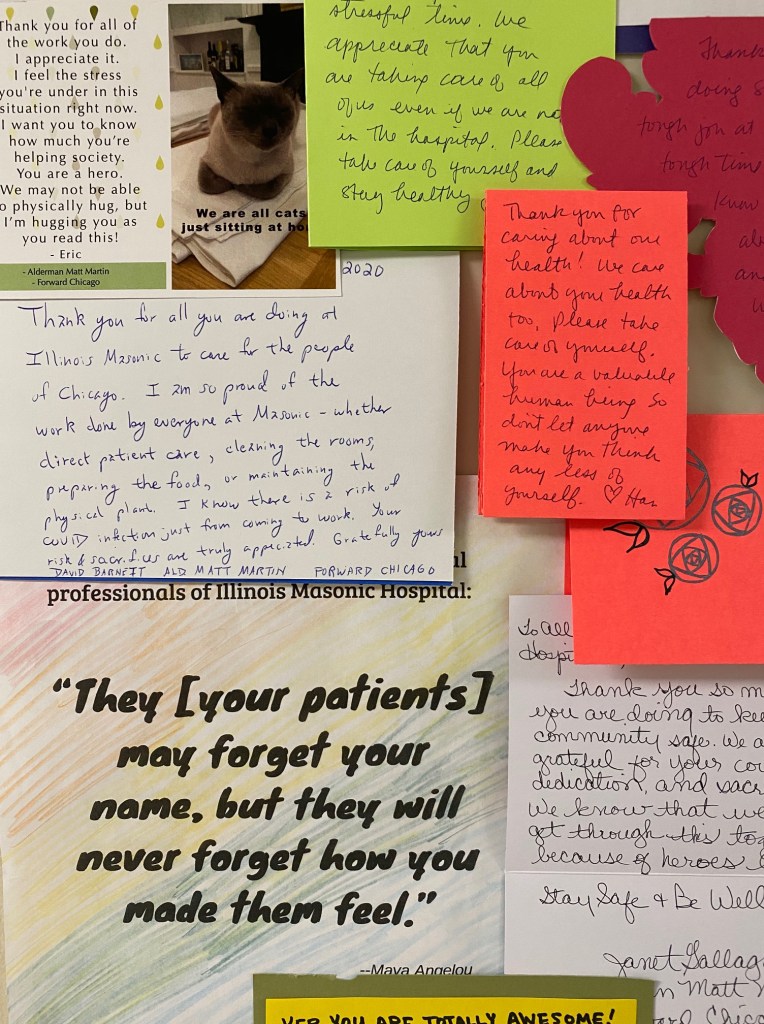 Thank you for all of
the work you do.
I appreciate it.
I feel the stress
you're under in this
situation right now.
I want you to know
how much you're
helping society.
You are a hero.
We may not be able
to physically hug, but
I'm hugging you as
you read this!
- Eric
- Alderman Matt Martin
- Forward Chicago
We are all cats
just sitting at
stressful time. We
appreciate that you
are taking care of all
of us even if we are no
in the hospital. Please
take care of yourself and
stay healthy
Thank
doing
tough
tough time
know
and
Thank you for
caring about our
health! We care
about your health
too. Please take
care of yourself.
You are a valuable
human being so
don't let anyone
make you think
any less of
yourself. ♡ Han
2020
Thank you for all you are doing at
Illinois Masonic to care for the people
of Chicago. I am so proud of the
work done by everyone at Masonic – whether
direct patient care, cleaning the rooms,
preparing the food, or maintaining the
physical plant. I know there is a risk of
COVID infection just from coming to work. Your
risk & sacrifices are truly appreciated. Gratefully yours
DAVID BARNETT ALD MATT MARTIN FORWARD CHICAGO
professionals of Illinois Masonic Hospital:
"They [your patients]
may forget your
name, but they will
never forget how you
made them feel."
--Maya Angelou
To all
Hospi
Thank you so m
you are doing to kee
community safe. We a
grateful for your cou
dedication, and sacr
We know that we
get through this to
because of heroes
Stay Safe & Be Well
Janet Gallag
Matt
Chica
YEP YOU ARE TOTALLY AWESOME!